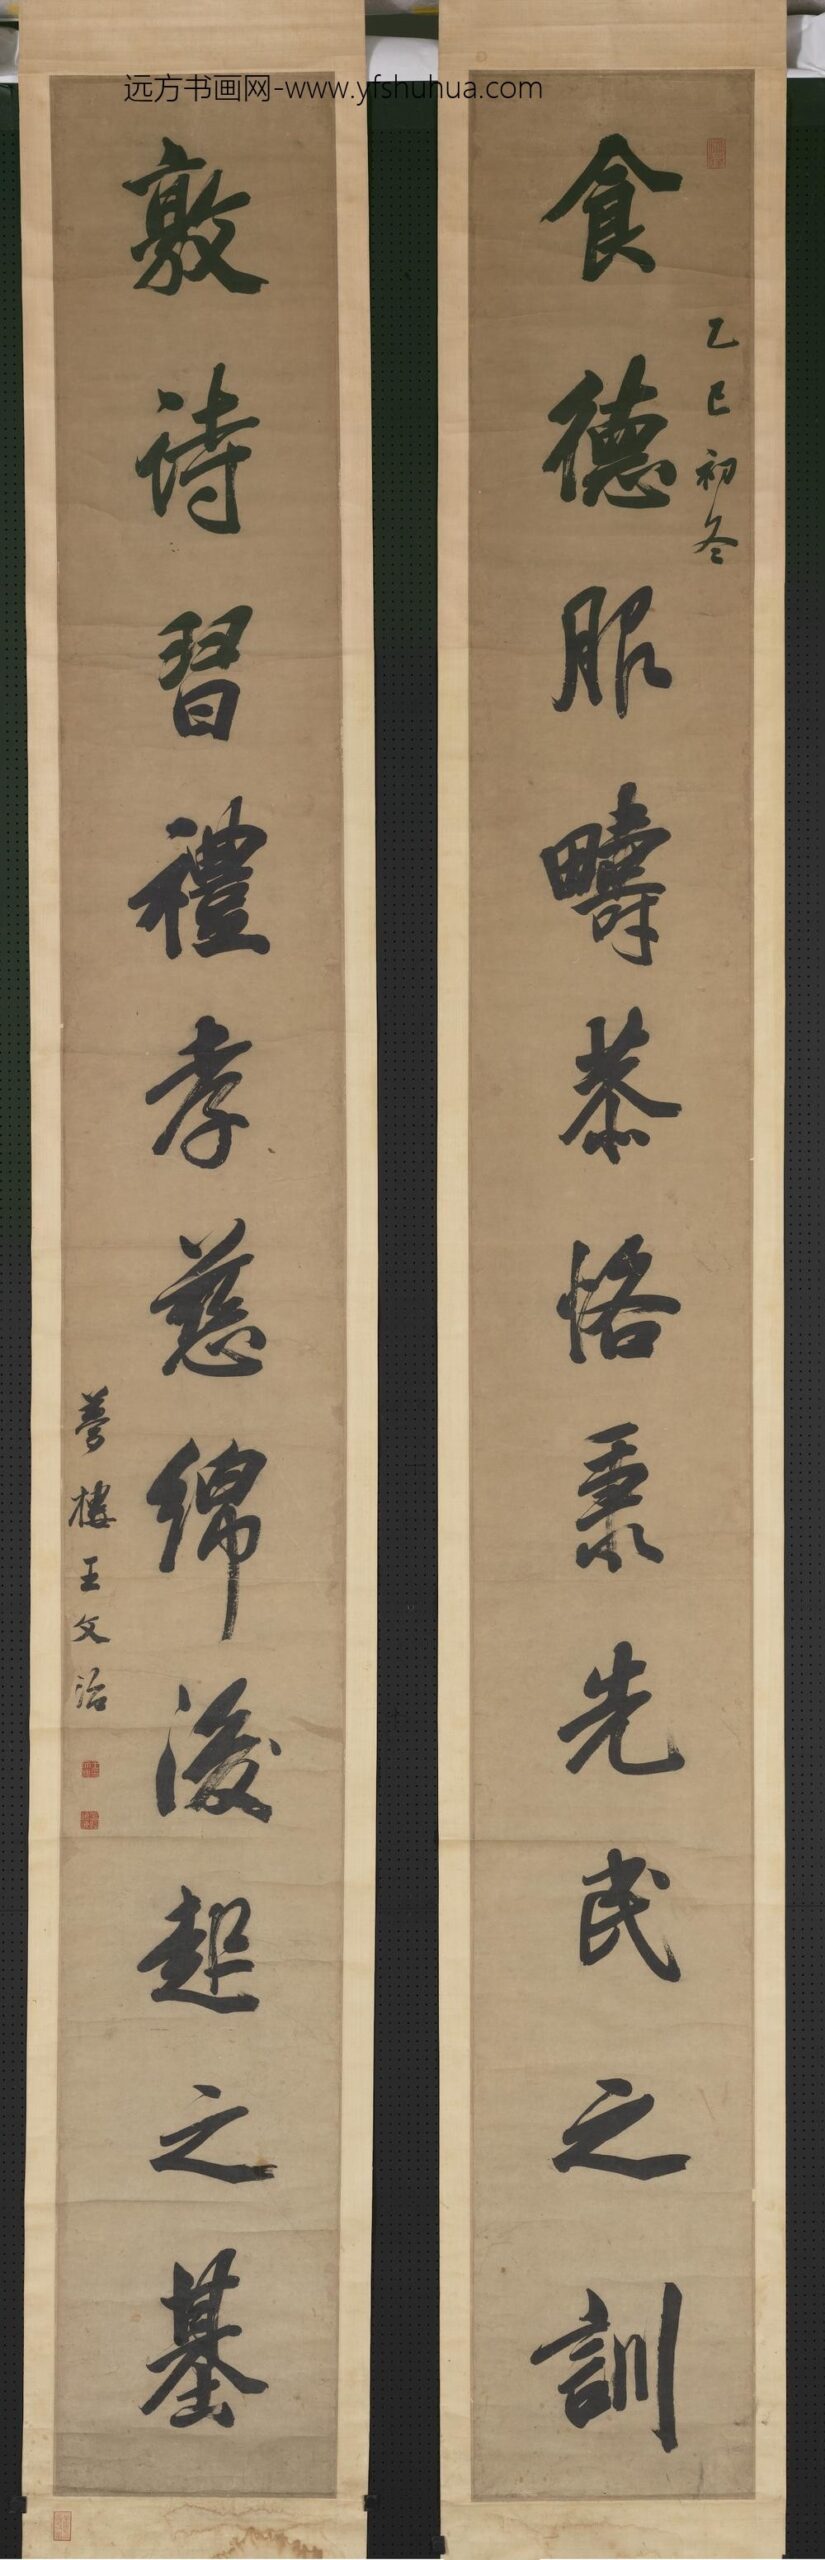 远方书画网-www.yfshuhua.com
乙巳初冬
食德服疇恭恪秉先民之訓
敦诗習禮孝慈綿後起之基
夢樓王文治